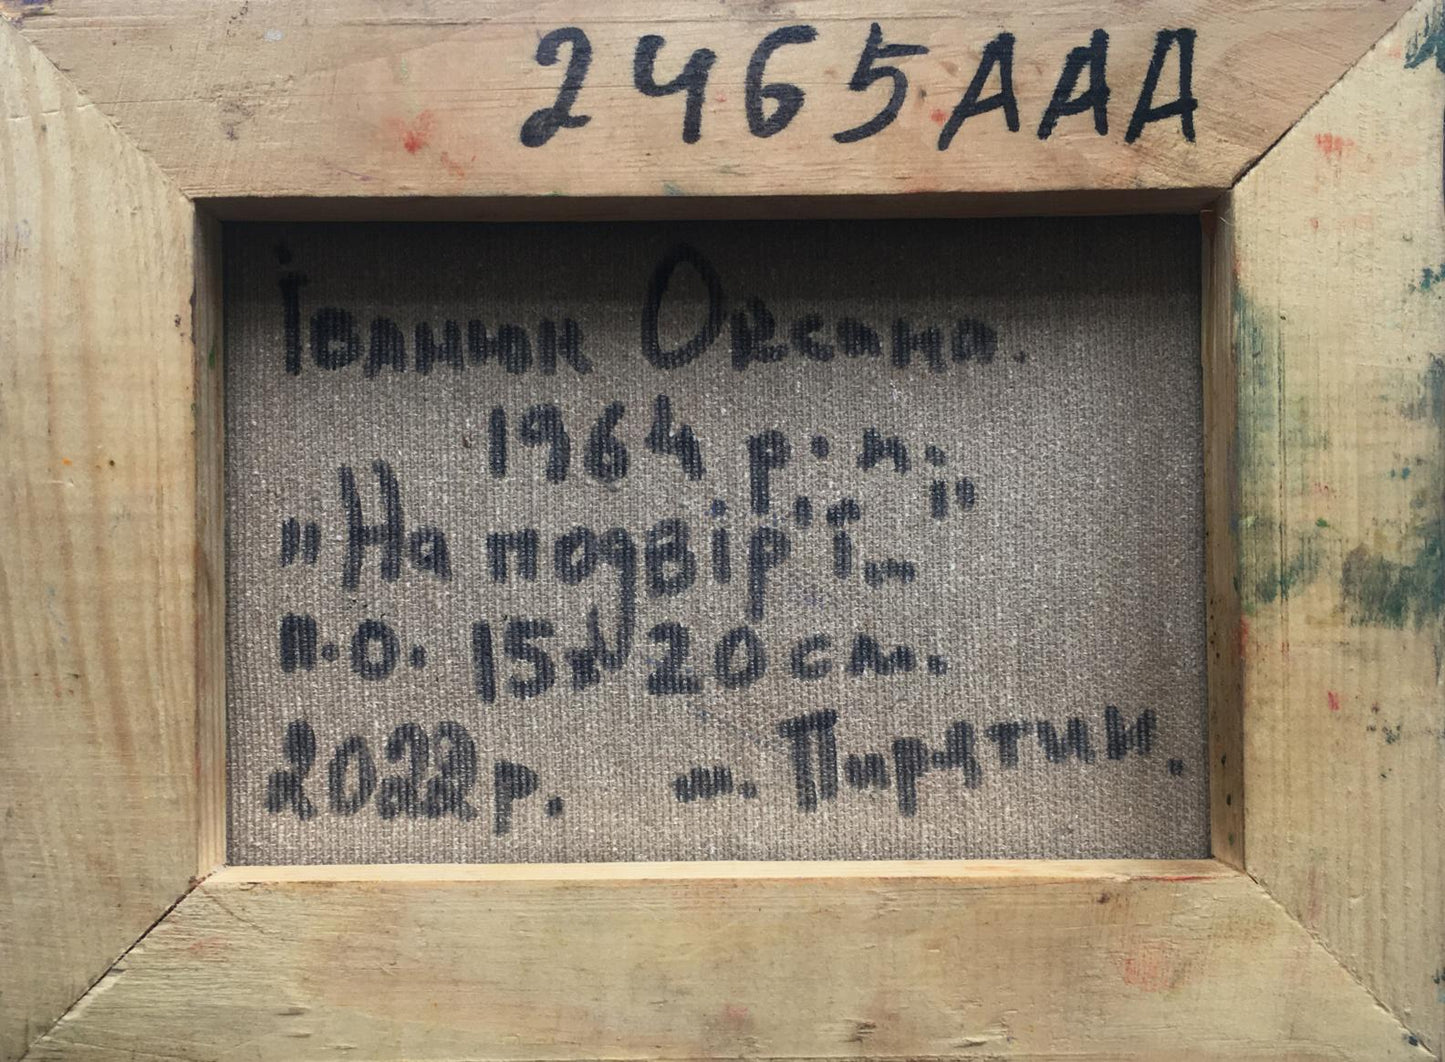 2465ААА
Іванюк Оксана.
1964 р.н.;
„На подвір'ї„
п.о. 15х20см.
2022р. м. Пирятин.